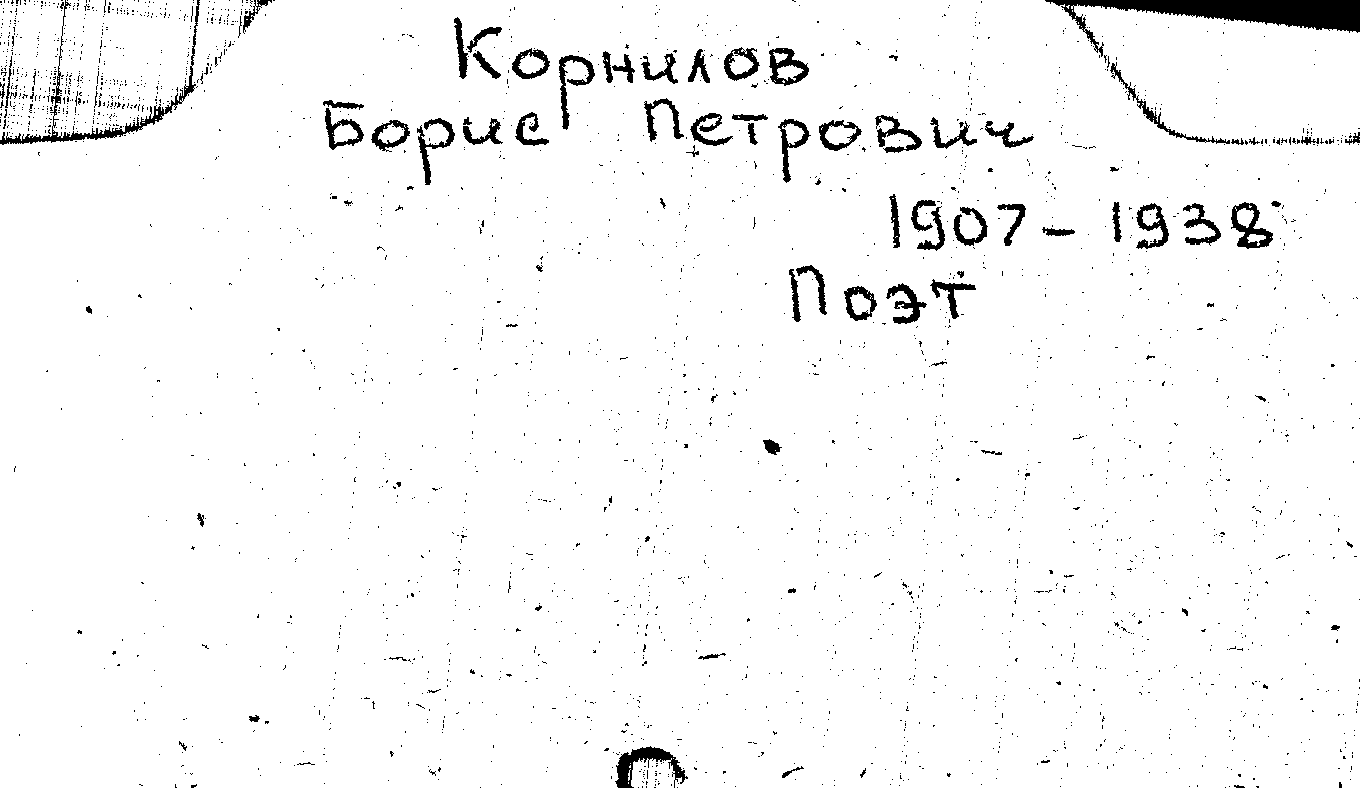 Корнилов
Борис Петрович
1907 - 1938
Поэт